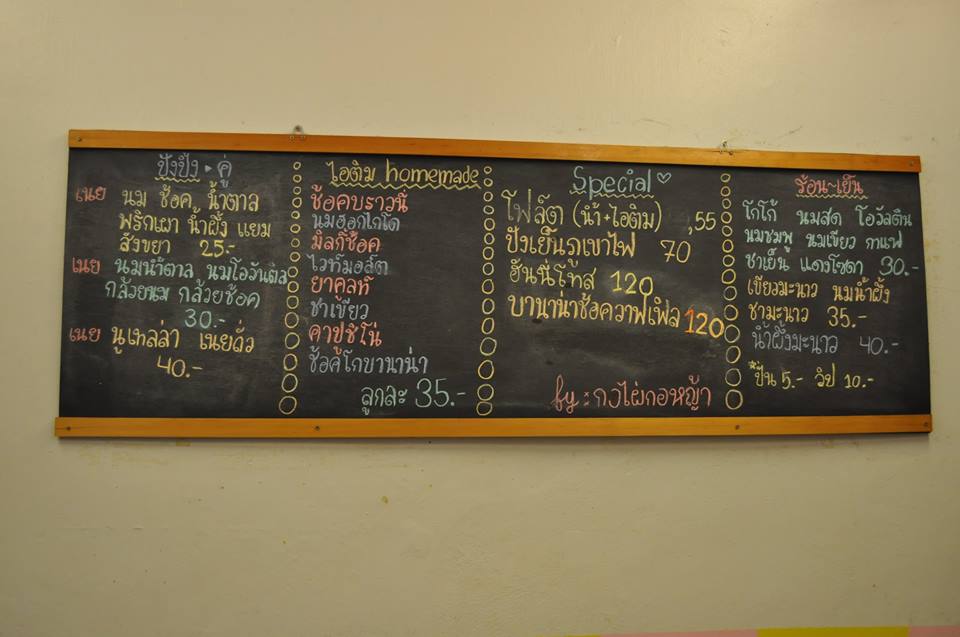 ปังปิ้ง ▸ คู่
เนย นม ช็อค น้ำตาล
พริกเผา น้ำผึ้ง แยม
สังขยา 25.-
เนย นมน้ำตาล นมโอวันติล
กล้วยนม กล้วยช็อค
30.-
เนย นูเทลล่า เนยถั่ว
40.-
ไอติม homemade
ช็อคบราวนี่
นมฮอกไกโด
มิลกี้ช็อค
ไวท์มอลต
ยาคูลท์
ชาเขียว
คาปูชิโน่
ช็อคโกบานาน่า
ลูกละ 35.-
Special ♡
โฟล์ต (น้ำ+ไอติม) ,55
ปังเย็นภูเขาไฟ 70
ฮันนี่โทส 120
บานาน่าช็อควาฟเฟิล 120
by : กงไผ่กอหญ้า
ร้อน~เย็น
โกโก้ นมสด โอวัลติน
นมชมพู นมเขียว กาแฟ
ชาเย็น แดงโซดา 30.-
เขียวมะนาว นมน้ำผึ้ง
ชามะนาว 35.-
น้ำผึ้งมะนาว 40.-
*ปั่น 5.- วิป 10.-